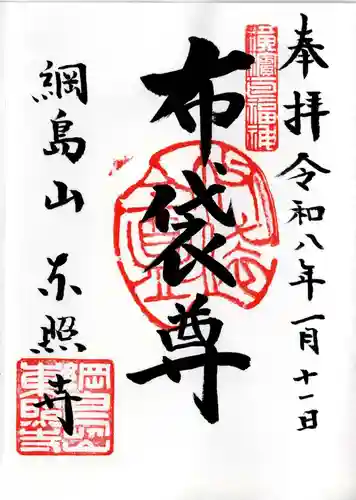 奉拝令和八年一月十一日
横濱七福神
布袋尊
綱島山東照寺
綱島山
東照寺